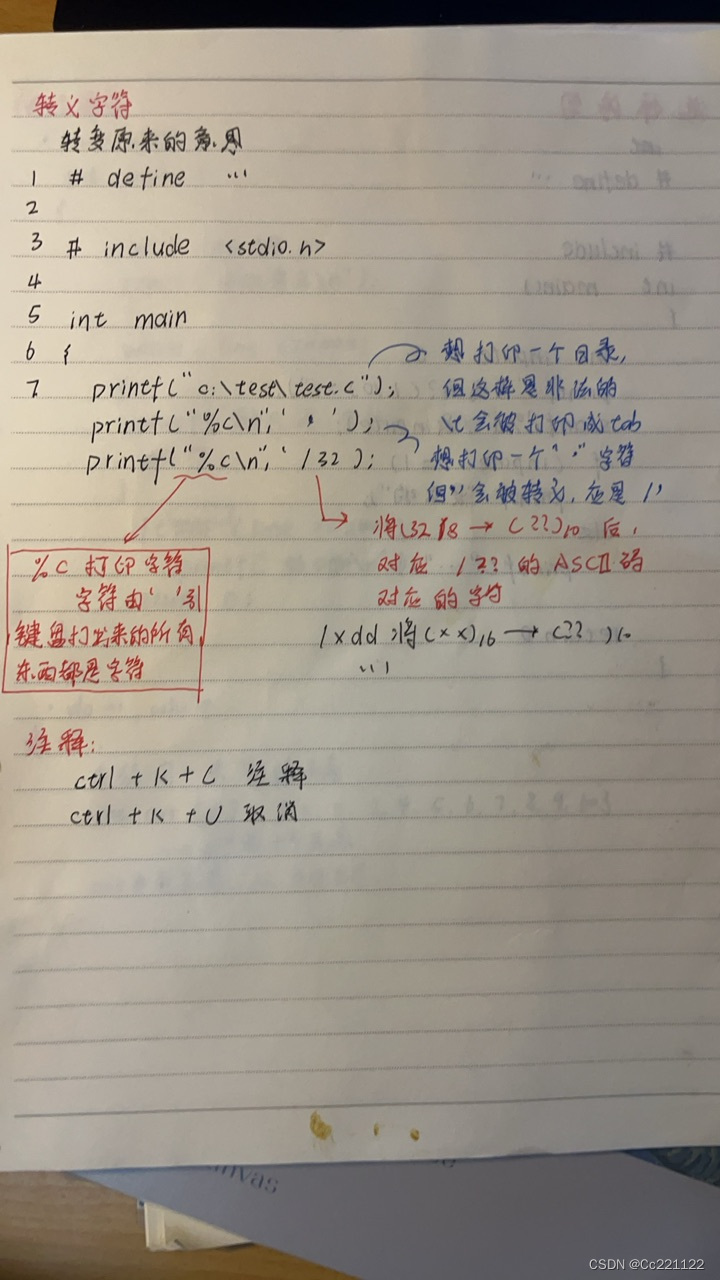 转义字符
转变原来的意思
1 # define ...
2
3 # include <stdio.h>
4
5 int main
6 {
7 printf("c:\test\test.c");
printf("%c\n",' ' ');
printf("%c\n",' /32 );
想打印一个目录,
但这样是非法的
\t会被打印成tab
想打印一个' ' '字符
但' '会被转义,应是 /'
将(32)8 → (??)10 后,
对应 /?? 的 ASCII码
对应的字符
/xdd 将(xx)16 → (??)10
...
%c 打印字符
字符由' '引
键盘打出来的所有
东西都是字符
注释:
ctrl + K + C 注释
ctrl + K + U 取消
nvas
CSDN @Cc221122